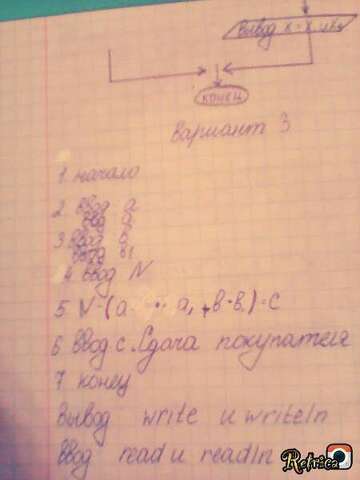 Вывод
конец
Вариант 3
1. начало
2. ввод a
ввод a
3. ввод b
ввод b1
4. ввод N
5. N-(a · a, +b·b,)=c
6 Ввод c. Сдача покупателя
7 конец
Вывод write и writeln
Ввод read и readln
Retrica